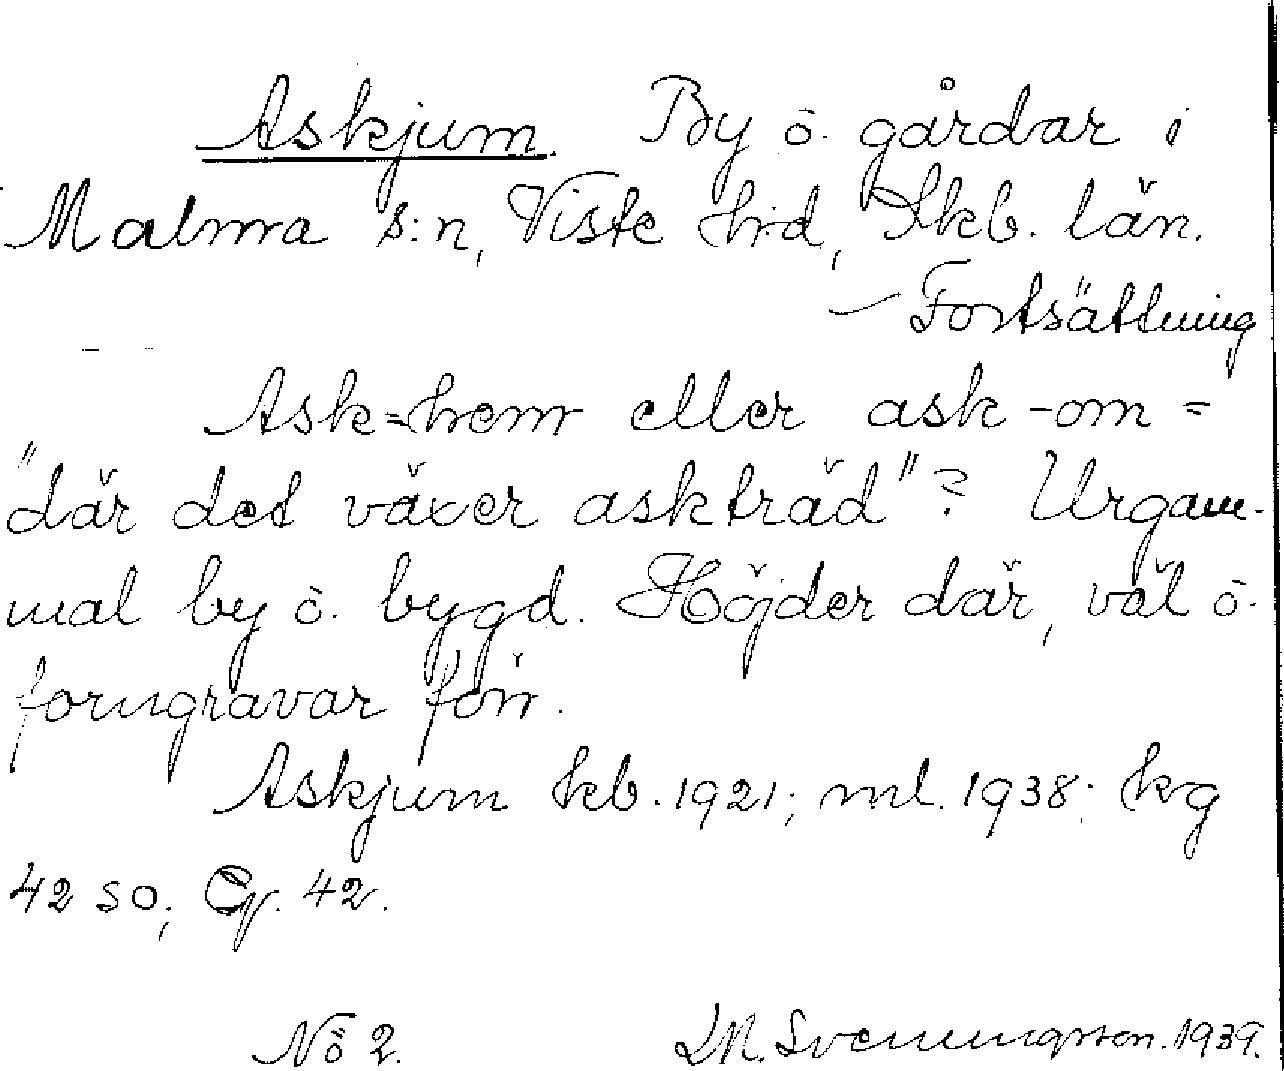 Askjum. By o. gårdar i
Malma s:n, Viste hrd, Skb. län.
— Fortsättning
Ask-hem eller ask-om =
"där det växer askträd"? Urgam-
mal by o. bygd. Höjder där, väl o.
forngravar förr.
Askjum kb. 1921; ml. 1938; kg
42 so; 42.
No 2. M. Svenungsson. 1939.